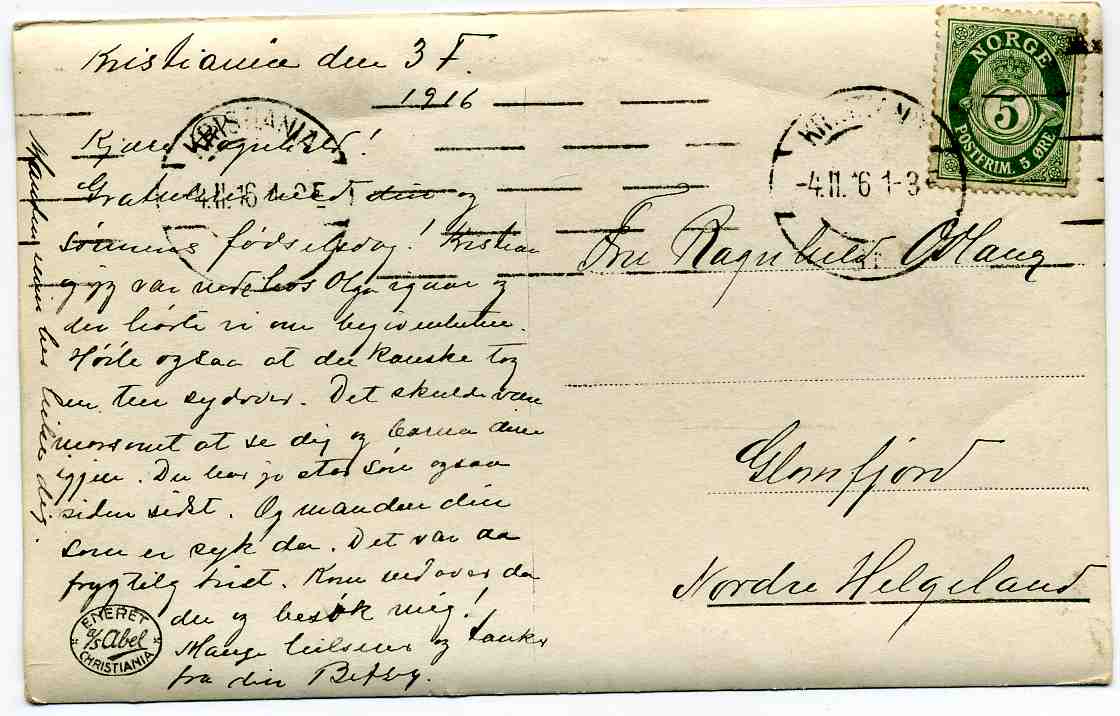 Kristiania den 3 F.
1916
Kjære Ragnhild!
Gratulerer med din og
sønnens fødselsdag! Kristian
og jeg var nede hos Olga igaar og
der hørte vi om begivenheten.
Hørte ogsaa at du kanske tog
en tur sydover. Det skulde være
morsomt at se dig og barna dine
igjen. Du har jo stor søn ogsaa
siden sidst. Og manden din
som er syk da. Det var da
frygtelig trist. Kom nedover da
du og besøk mig!
Mange hilsener og tanker
fra din Betsy.
Manden min ber hilse dig.
NORGE
5
POSTFRIM. 5 ØRE
KRISTIANIA
-4.II.16 1-
KRISTIANIA
-4.II.16 1-3
Fru Ragnhild Odlaug
Glomfjord
Nordre Helgeland
ENERET
A/S Abel
CHRISTIANIA